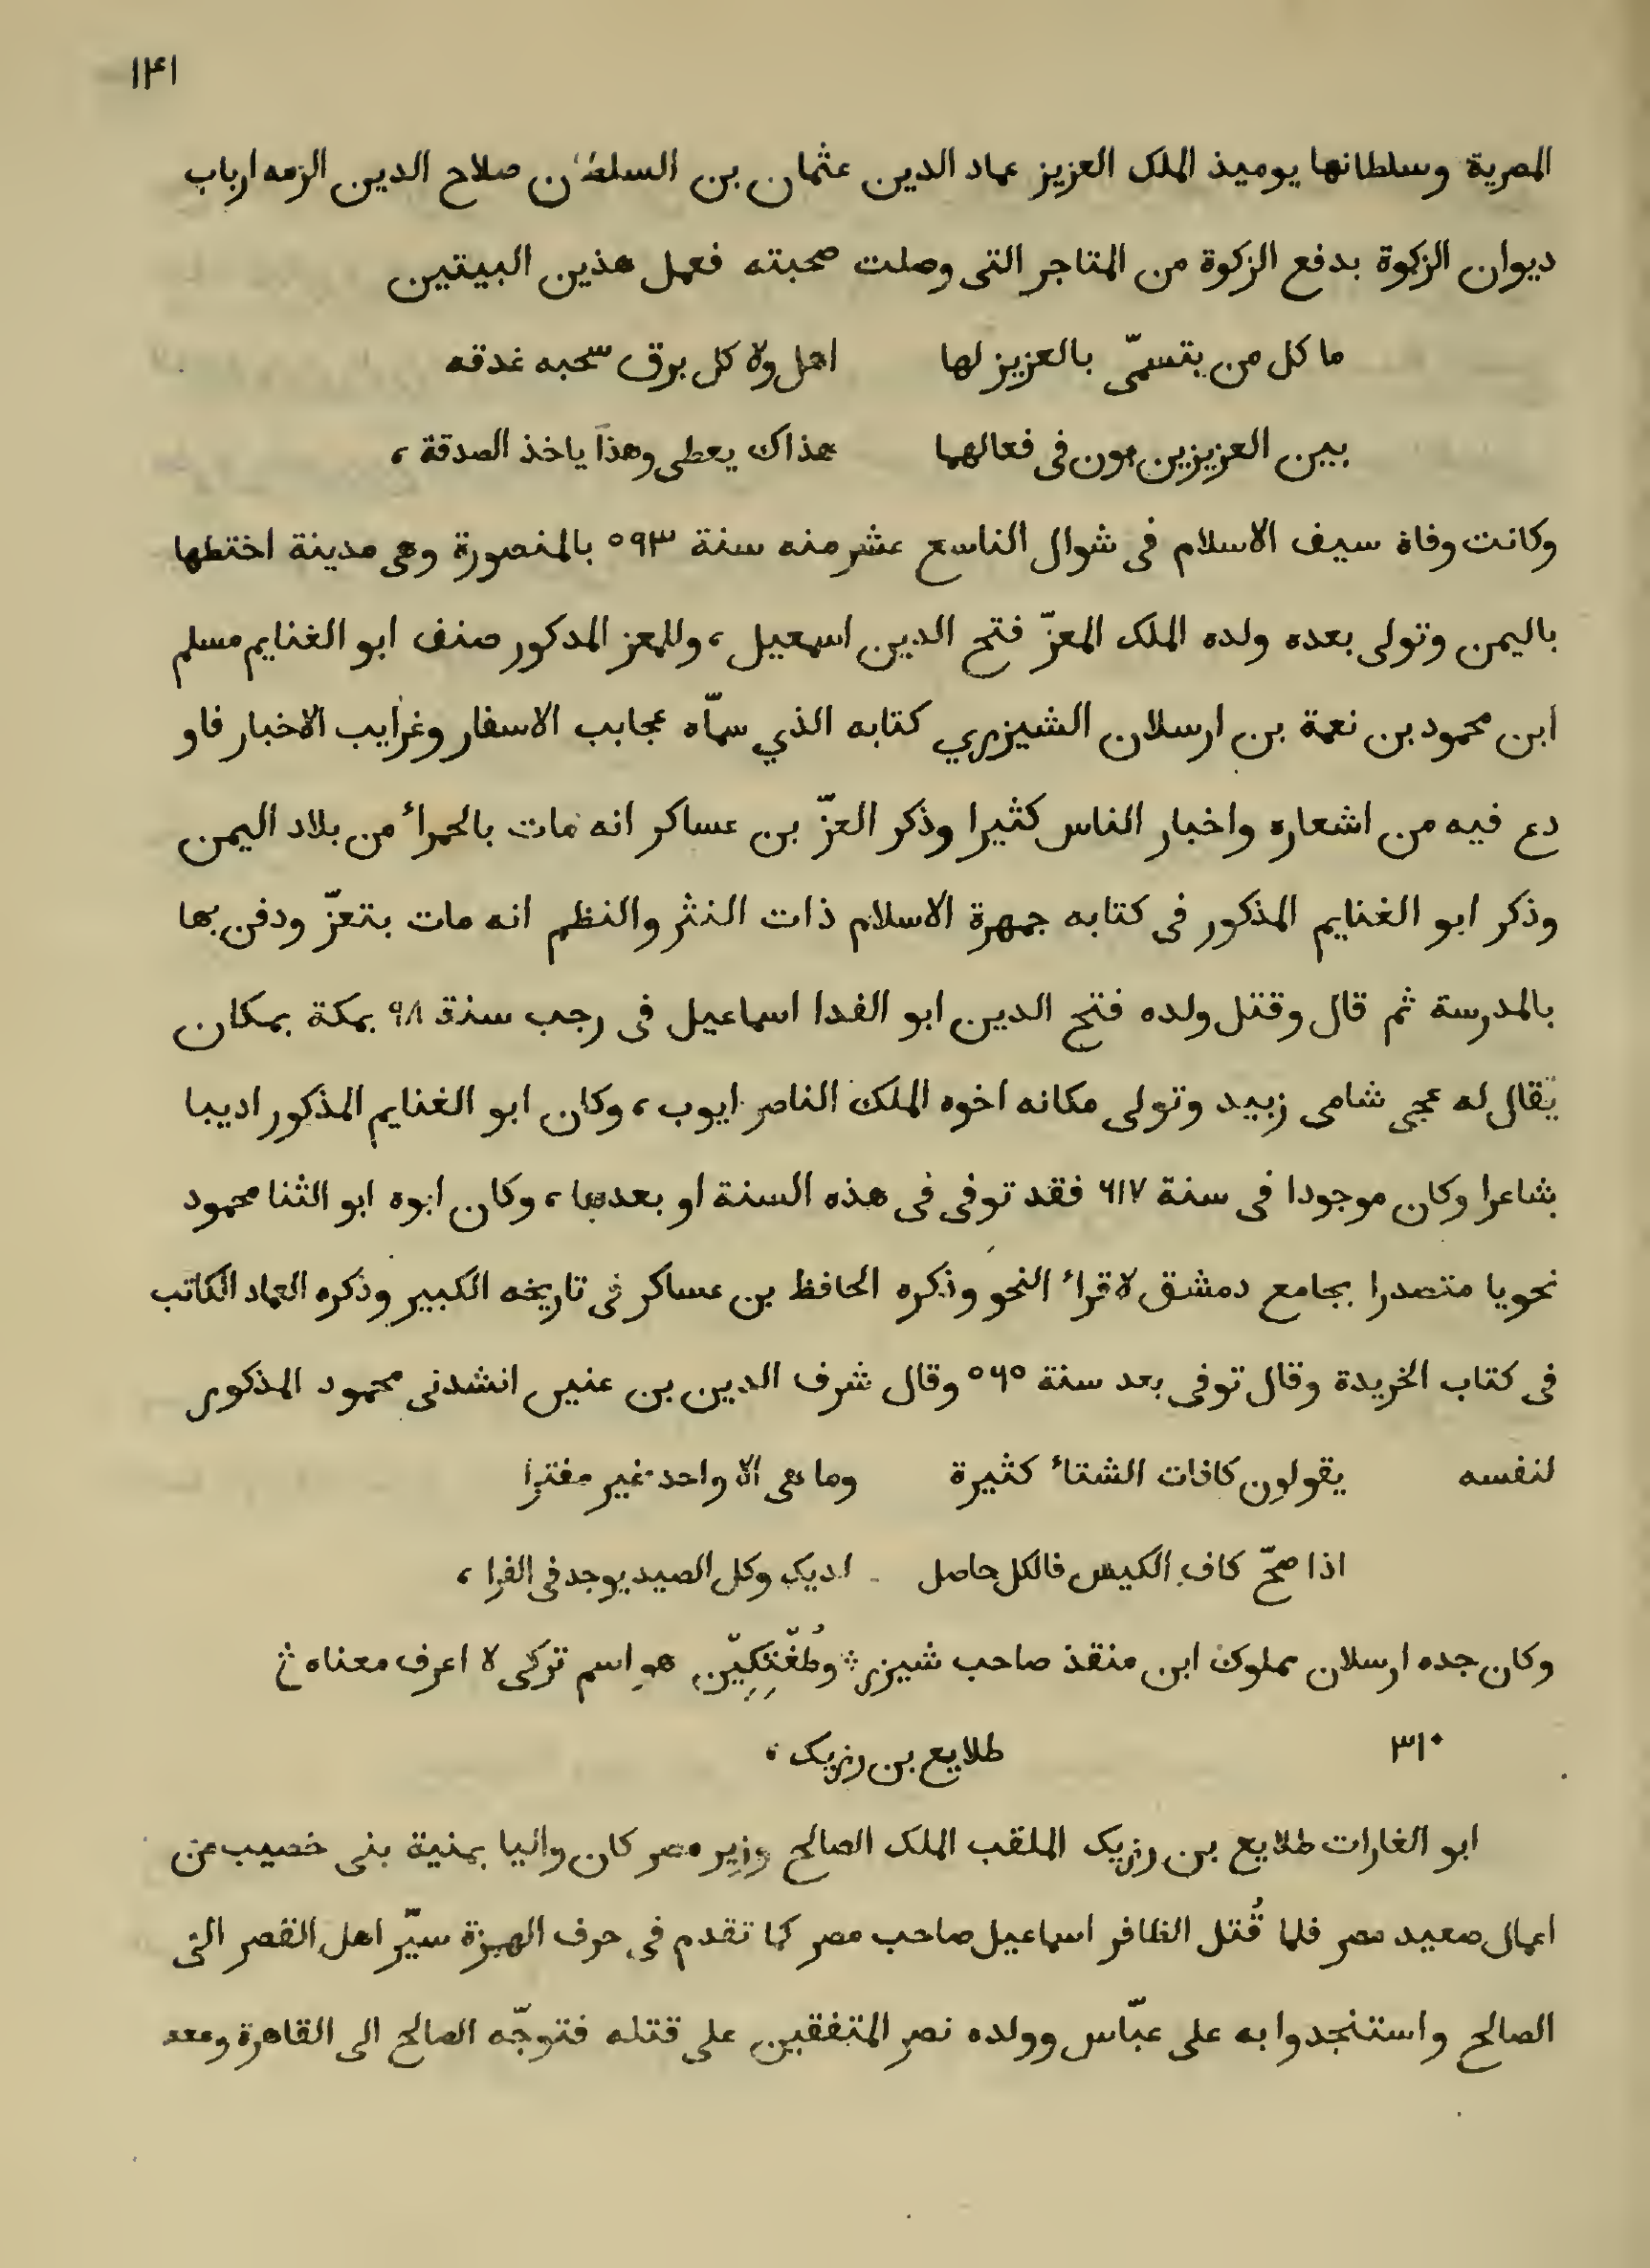 ١٤١
المصرية وسلطانها يوميذ الملك العزيز عماد الدين عثمان بن السلطان صلاح الدين الزمه ارباب
ديوان الزكوة بدفع الزكوة من المتاجر التى وصلت صحبته فعمل هذين البيتين
ما كل من يتسمّى بالعزيز لها اهل ولا كل برق سحبه غدقه
بين العزيزين بون فى فعالهما هذاك يعطى وهذا ياخذ الصدقة ،
وكانت وفاة سيف الاسلام فى شوال التاسع عشر منه سنة ٥٩٣ بالمنصورة وهى مدينة اختطها
باليمن وتولى بعده ولده الملك المعزّ فتح الدين اسمعيل ، وللمعز المدكور صنف ابو الغنايم مسلم
ابن محمود بن نعمة بن ارسلان الشيزري كتابه الذي سمّاه عجايب الاسفار وغرايب الاخبار فاو
دع فيه من اشعاره واخبار الناس كثيرا وذكر العزّ بن عساكر انه مات بالحمراء من بلاد اليمن
وذكر ابو الغنايم المذكور فى كتابه جمهرة الاسلام ذات النثر والنظم انه مات بتعزّ ودفن بها
بالمدرسة ثم قال وقتل ولده فتح الدين ابو الفدا اسماعيل فى رجب سنة ٩٨ بمكة بمكان
يقال له عجى شامى زبيد وتولى مكانه اخوه الملك الناصر ايوب ، وكان ابو الغنايم المذكور اديبا
شاعرا وكان موجودا فى سنة ٦١٧ فقد توفى فى هذه السنة او بعدها ، وكان ابوه ابو الثنا محمود
نحويا متصدرا بجامع دمشق لاقراء النحو وذكره الحافظ بن عساكر فى تاريخه الكبير وذكره العماد الكاتب
فى كتاب الخريدة وقال توفى بعد سنة ٥٦٥ وقال شرف الدين بن عنين انشدنى محمود المذكور
لنفسه يقولون كافات الشتاء كثيرة وما هى الّا واحد غير مفترا
اذا صحّ كاف الكيس فالكل حاصل لديك وكل الصيد يوجد فى الفرا ،
وكان جده ارسلان مملوك ابن منقذ صاحب شيزر وطُغْتِكِيّن هو اسم تركى لا اعرف معناه
٣١٠ طلايع بن رزيك ،
ابو الغارات طلايع بن رزيك الملقب الملك الصالح وزير مصر كان واليا بمنية بنى خصيب من
اعمال صعيد مصر فلما قُتل الظافر اسماعيل صاحب مصر كما تقدم فى حرف الهمزة سيّر اهل القصر الى
الصالح واستنجدوا به على عبّاس وولده نصر المتفقين على قتله فتوجّه الصالح الى القاهرة ومعه